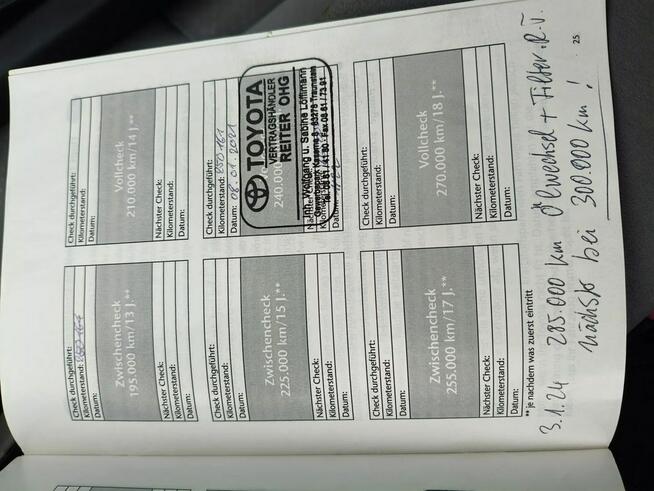 Check durchgeführt:
Kilometerstand:
Datum:
Zwischencheck
195.000 km/13 J.**
Nächster Check:
Kilometerstand:
Datum:
Check durchgeführt:
Kilometerstand:
Datum:
Vollcheck
210.000 km/14 J.**
Nächster Check:
Kilometerstand:
Datum:
Check durchgeführt:
Kilometerstand:
Datum:
Zwischencheck
225.000 km/15 J.**
Nächster Check:
Kilometerstand:
Datum:
Check durchgeführt:
Kilometerstand:
Datum: 08.01.2021
240.000
TOYOTA
VERTRAGSHÄNDLER
REITER OHG
Inh. Wolfgang u. Sabine
Check durchgeführt:
Kilometerstand:
Datum:
Zwischencheck
255.000 km/17 J.**
Nächster Check:
Kilometerstand:
Datum:
Check durchgeführt:
Kilometerstand:
Datum:
Vollcheck
270.000 km/18 J.**
Nächster Check:
Kilometerstand:
Datum:
** je nachdem was zuerst eintritt
3.1.24 285.000 km Ölwechsel + Filter
nächste bei 300.000 km!
25